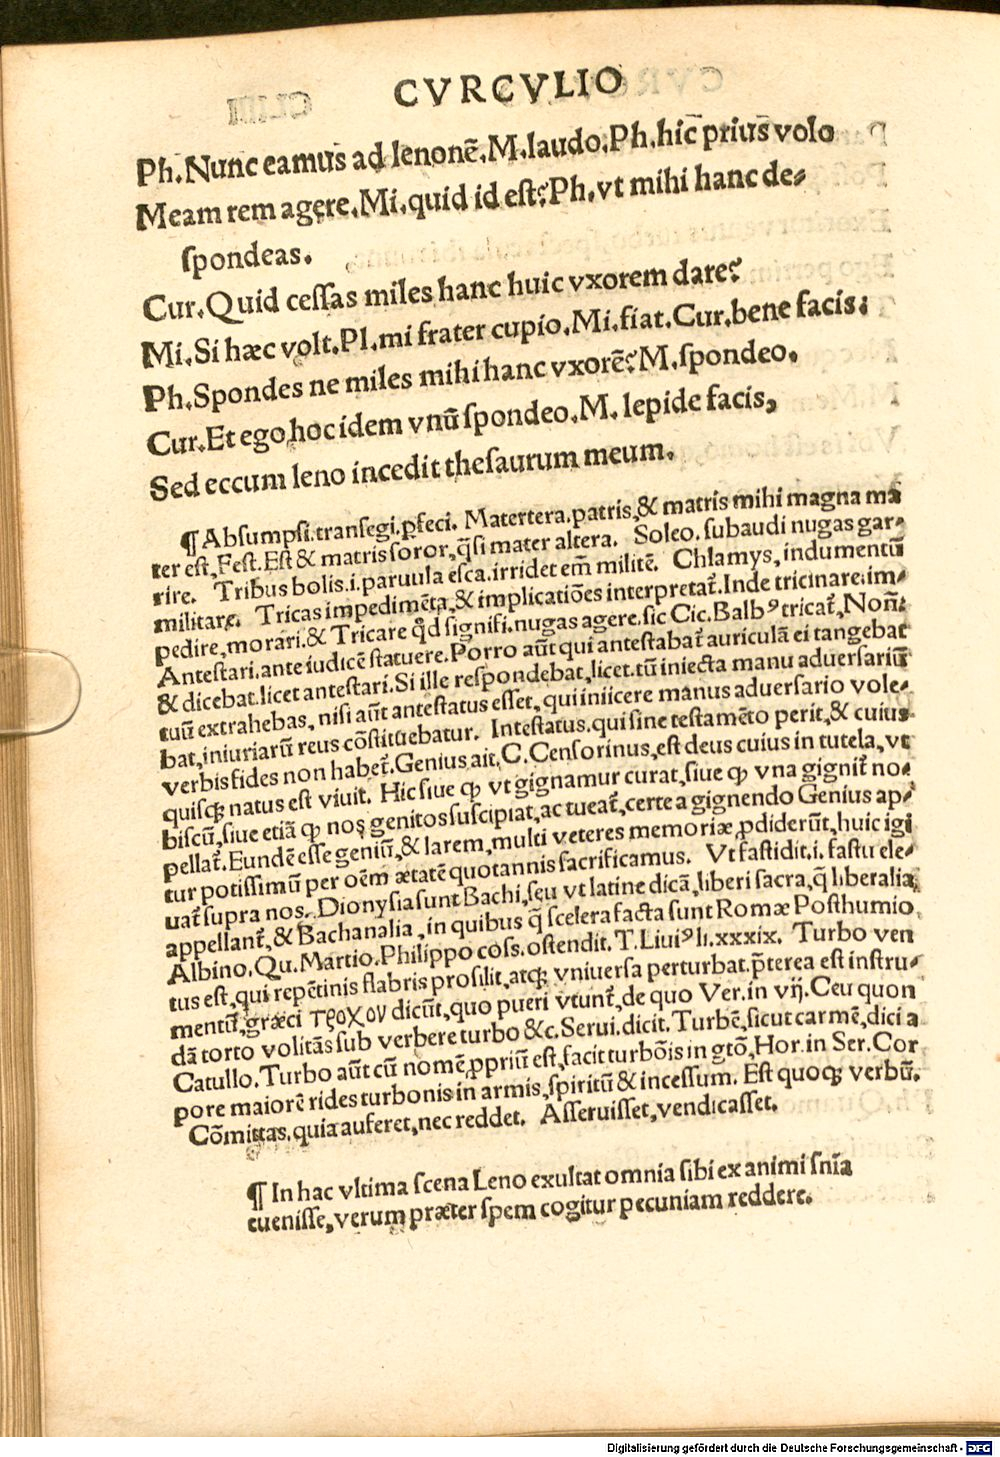 CVRCVLIO
Ph.Nunc eamus ad lenonē.M.laudo.Ph.hic prius volo
Meam rem agere.Mi.quid id est?Ph.vt mihi hanc de-
spondeas.
Cur.Quid cessas miles hanc huic vxorem dare?
Mi.Si hæc volt.Pl.mi frater cupio.Mi.fiat.Cur.bene facis.
Ph.Spondes ne miles mihi hanc vxorē?M.spondeo.
Cur.Et ego hoc idem vnū spondeo.M.lepide facis,
Sed eccum leno incedit thesaurum meum.
¶ Absumpsi.transegi.ꝓfeci. Matertera.patris,& matris mihi magna ma
ter est,Fest.Est & matris soror,q̄si mater altera. Soleo.subaudi nugas gar-
rire. Tribus bolis.i.paruula esca.irridet em̄ militē. Chlamys,indumentū
militare. Tricas impedimēta,& implicatiōes interpretat᷑.Inde tricinare.im-
pedire,morari.& Tricare qd̄ signifi.nugas agere.sic Cic.Balbꝰ tricat᷑,Non̄.
Antestari.ante iudicē statuere.Porro aūt qui antestabat᷑ auriculā ei tangebat
& dicebat.licet antestari.Si ille respondebat,licet.tū iniecta manu aduersariū
tuū extrahebas,nisi aūt antestatus esset,qui iniicere manus aduersario vole-
bat,iniuriarū reus cōstituebatur. Intestatus.qui sine testamēto perit,& cuius
verbis fides non habet᷑.Genius ait.C.Censorinus,est deus cuius in tutela,vt
quisqꝫ natus est viuit. Hic siue ꝙ vt gignamur curat,siue ꝙ vna gignit᷑ no-
biscū,siue etiā ꝙ nos genitos suscipiat,ac tueat᷑,certe a gignendo Genius ap-
pellat᷑.Eundē esse geniū,& larem,multi veteres memoriæ ꝓdiderūt,huic igi
tur potissimū per oēm ætatē quotannis sacrificamus. Vt fastidit.i.fastu ele-
uat᷑ supra nos. Dionysia sunt Bachi,seu vt latine dicā,liberi sacra,q̄ liberalia
appellant᷑,& Bachanalia,in quibus q̄ scelera facta sunt Romæ Posthumio
Albino.Qu.Martio.Philippo coss.ostendit.T.Liuiꝰ li.xxxix. Turbo ven
tus est,qui repētinis flabris prosilit,atqꝫ vniuersa perturbat.p̄terea est instru-
mentū,græci τροχον dicūt,quo pueri vtunt᷑,de quo Ver.in vij.Ceu quon
dā torto volitās sub verbere turbo &c.Serui.dicit.Turbē,sicut carmē,dici a
Catullo.Turbo aūt cū nomē ꝓpriū est,facit turbōis in gtō,Hor.in Ser.Cor
pore maiorē rides turbonis in armis,spiritū & incessum. Est quoqꝫ verbū.
Cōmittas.quia auferet,nec reddet. Asseruisset,vendicasset.
¶ In hac vltima scena Leno exultat omnia sibi ex animi snīa
euenisse,verum præter spem cogitur pecuniam reddere.
Digitalisierung gefördert durch die Deutsche Forschungsgemeinschaft - DFG